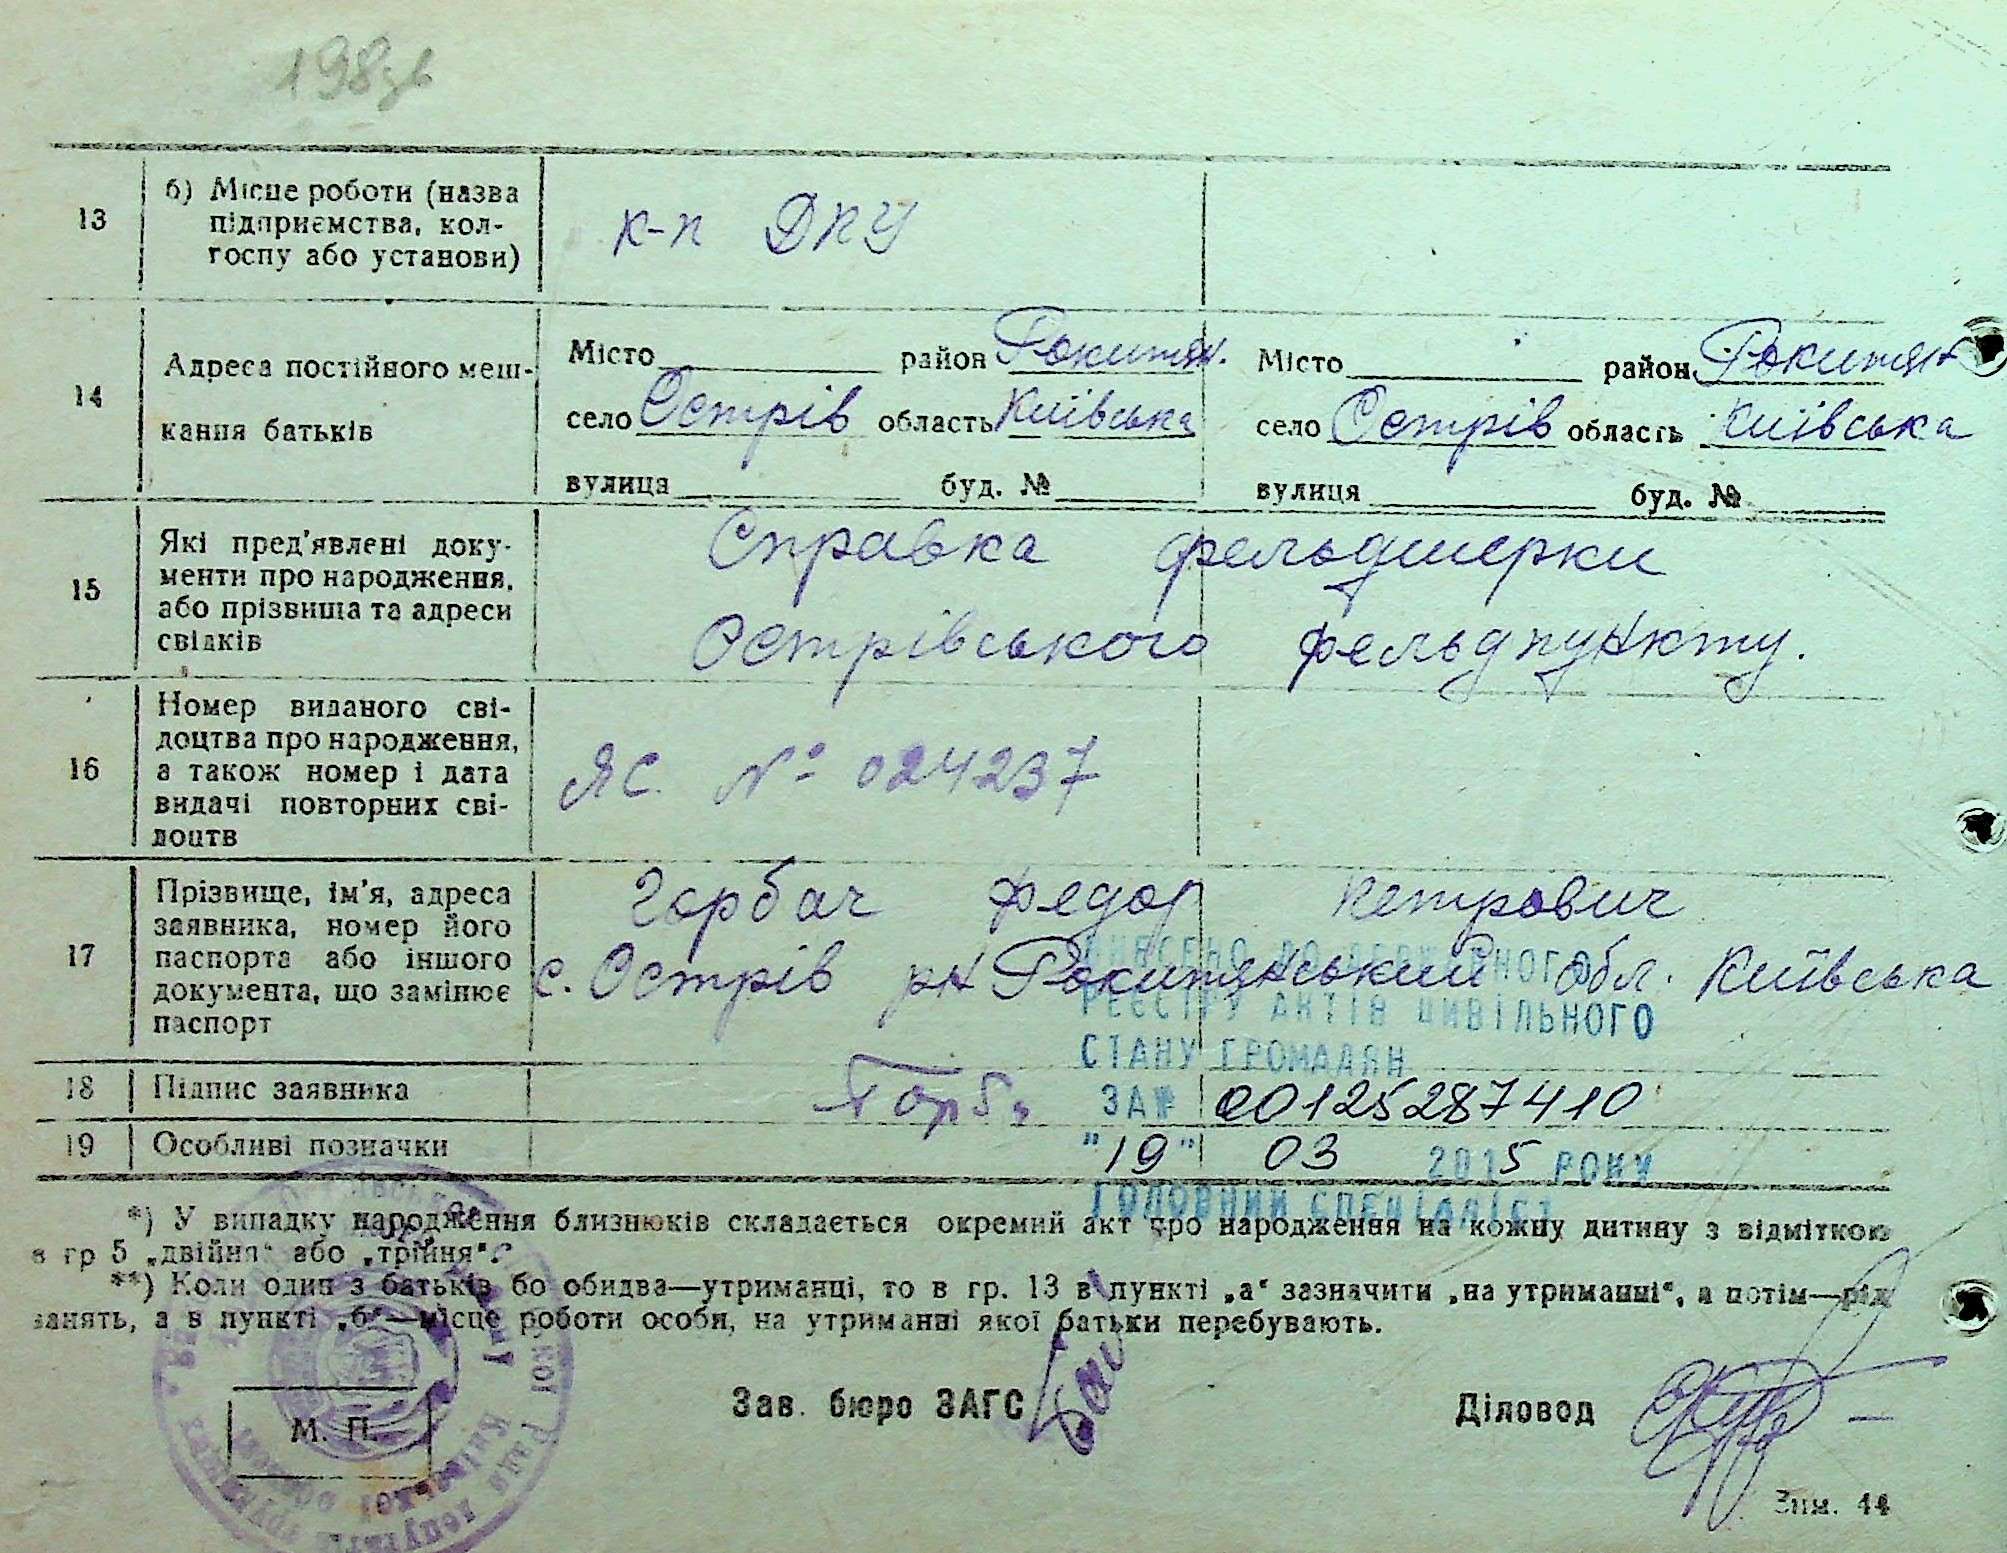 198зв
13
б) Місце роботи (назва
підприємства, кол-
госпу або установи)
к-п ДПУ
14
Адреса постійного меш-
кання батьків
Місто район Рокитян.
село Острів область Київська
вулиця буд. №
Місто район Рокитян
село Острів область Київська
вулиця буд. №
15
Які пред'явлені доку-
менти про народження,
або прізвища та адреси
свідків
Справка фельдшерки
Острівського фельдпункту.
16
Номер виданого сві-
доцтва про народження,
а також номер і дата
видачі повторних сві-
доцтв
ЯС. № 024237
17
Прізвище, ім'я, адреса
заявника, номер його
паспорта або іншого
документа, що замінює
паспорт
Горбач Федор Петрович
с. Острів рн Рокитянський обл. Київська
ВНЕСЕНО ДО ДЕРЖАВНОГО
РЕЄСТРУ АКТІВ ЦИВІЛЬНОГО
СТАНУ ГРОМАДЯН
ЗА № 00125287410
"19" 03 2015 РОКУ
ГОЛОВНИЙ СПЕЦІАЛІСТ
18
Підпис заявника
Горб.
19
Особливі позначки
*) У випадку народження близнюків складається окремий акт про народження на кожну дитину з відміткою
в гр 5 „двійня“ або „трійня“.
**) Коли один з батьків бо обидва—утриманці, то в гр. 13 в пункті „а“ зазначити „на утриманні“, а потім—рід
занять, а в пункті „б“—місце роботи особи, на утриманні якої батьки перебувають.
М. П.
Зав. бюро ЗАГС
Діловод
Зам. 44